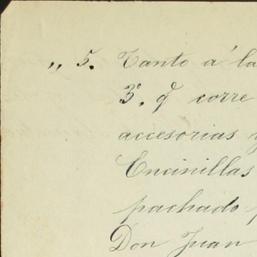 „ 5. Tanto á la
3ª. q̃ corre
accesorias y
Encinillas
pachado p
Don Juan